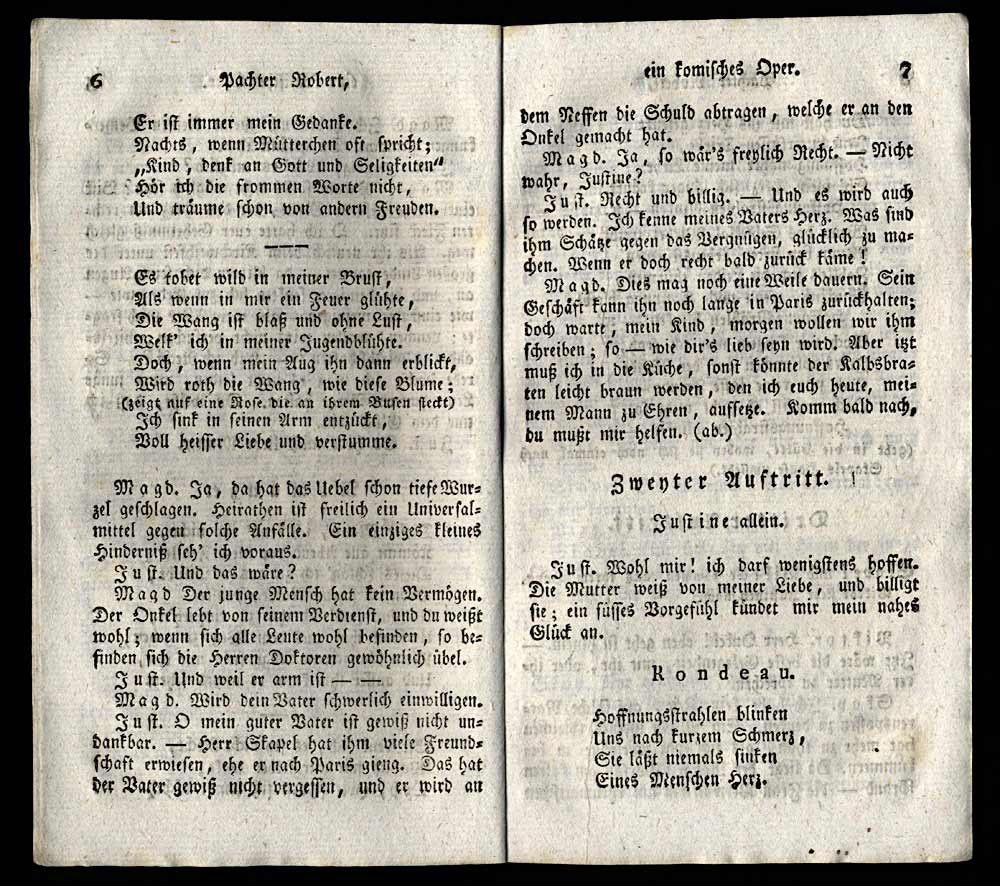 6 Pachter Robert,
Er ist immer mein Gedanke.
Nachts, wenn Mütterchen oft spricht;
„Kind, denk an Gott und Seligkeiten“
Hör ich die frommen Worte nicht,
Und träume schon von andern Freuden.
Es tobet wild in meiner Brust,
Als wenn in mir ein Feuer glühte,
Die Wang ist blaß und ohne Lust,
Welk' ich in meiner Jugendblühte.
Doch, wenn mein Aug ihn dann erblickt,
Wird roth die Wang, wie diese Blume;
(zeigt auf eine Rose, die an ihrem Busen steckt)
Ich sink in seinen Arm entzückt,
Voll heisser Liebe und verstumme.
Magd. Ja, da hat das Uebel schon tiefe Wur-
zel geschlagen. Heirathen ist freilich ein Universal-
mittel gegen solche Anfälle. Ein einziges kleines
Hinderniß seh' ich voraus.
Just. Und das wäre?
Magd Der junge Mensch hat kein Vermögen.
Der Onkel lebt von seinem Verdienst, und du weißt
wohl; wenn sich alle Leute wohl befinden, so be-
finden sich die Herren Doktoren gewöhnlich übel.
Just. Und weil er arm ist — —
Magd. Wird dein Vater schwerlich einwilligen.
Just. O mein guter Vater ist gewiß nicht un-
dankbar. — Herr Skapel hat ihm viele Freund-
schaft erwiesen, ehe er nach Paris gieng. Das hat
der Vater gewiß nicht vergessen, und er wird an
ein komisches Oper. 7
dem Neffen die Schuld abtragen, welche er an den
Onkel gemacht hat.
Magd. Ja, so wär's freylich Recht. — Nicht
wahr, Justine?
Just. Recht und billig. — Und es wird auch
so werden. Ich kenne meines Vaters Herz. Was sind
ihm Schätze gegen das Vergnügen, glücklich zu ma-
chen. Wenn er doch recht bald zurück käme!
Magd. Dies mag noch eine Weile dauern. Sein
Geschäft kann ihn noch lange in Paris zurückhalten;
doch warte, mein Kind, morgen wollen wir ihm
schreiben; so — wie dir's lieb seyn wird. Aber itzt
muß ich in die Küche, sonst könnte der Kalbsbra-
ten leicht braun werden, den ich euch heute, mei-
nem Mann zu Ehren, aufsetze. Komm bald nach,
du mußt mir helfen. (ab.)
Zweyter Auftritt.
Justine allein.
Just. Wohl mir! ich darf wenigstens hoffen.
Die Mutter weiß von meiner Liebe, und billigt
sie; ein süsses Vorgefühl kündet mir mein nahes
Glück an.
Rondeau.
Hoffnungsstrahlen blinken
Uns nach kurzem Schmerz,
Sie läßt niemals sinken
Eines Menschen Herz.